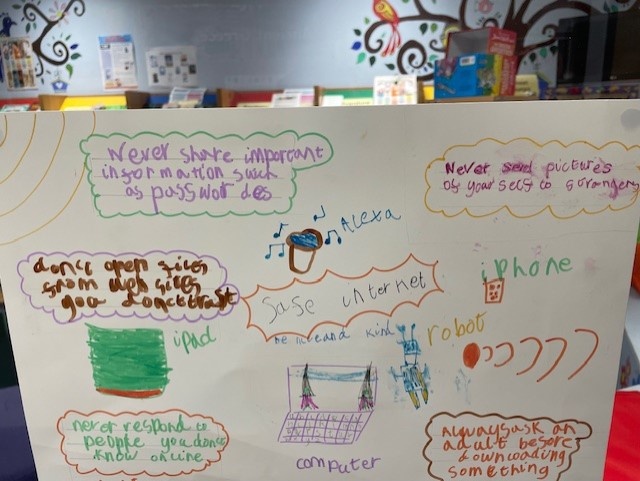 Never share important
information such
as passwordes
Never send pictures
of your self to strangers
Alexa
don't open files
from web sites
you donct trust
safe internet
iphone
ipad
be nice and kind
robot
never respond to
people you donct
know online
Always ask an
adult before
downloading
something
computer